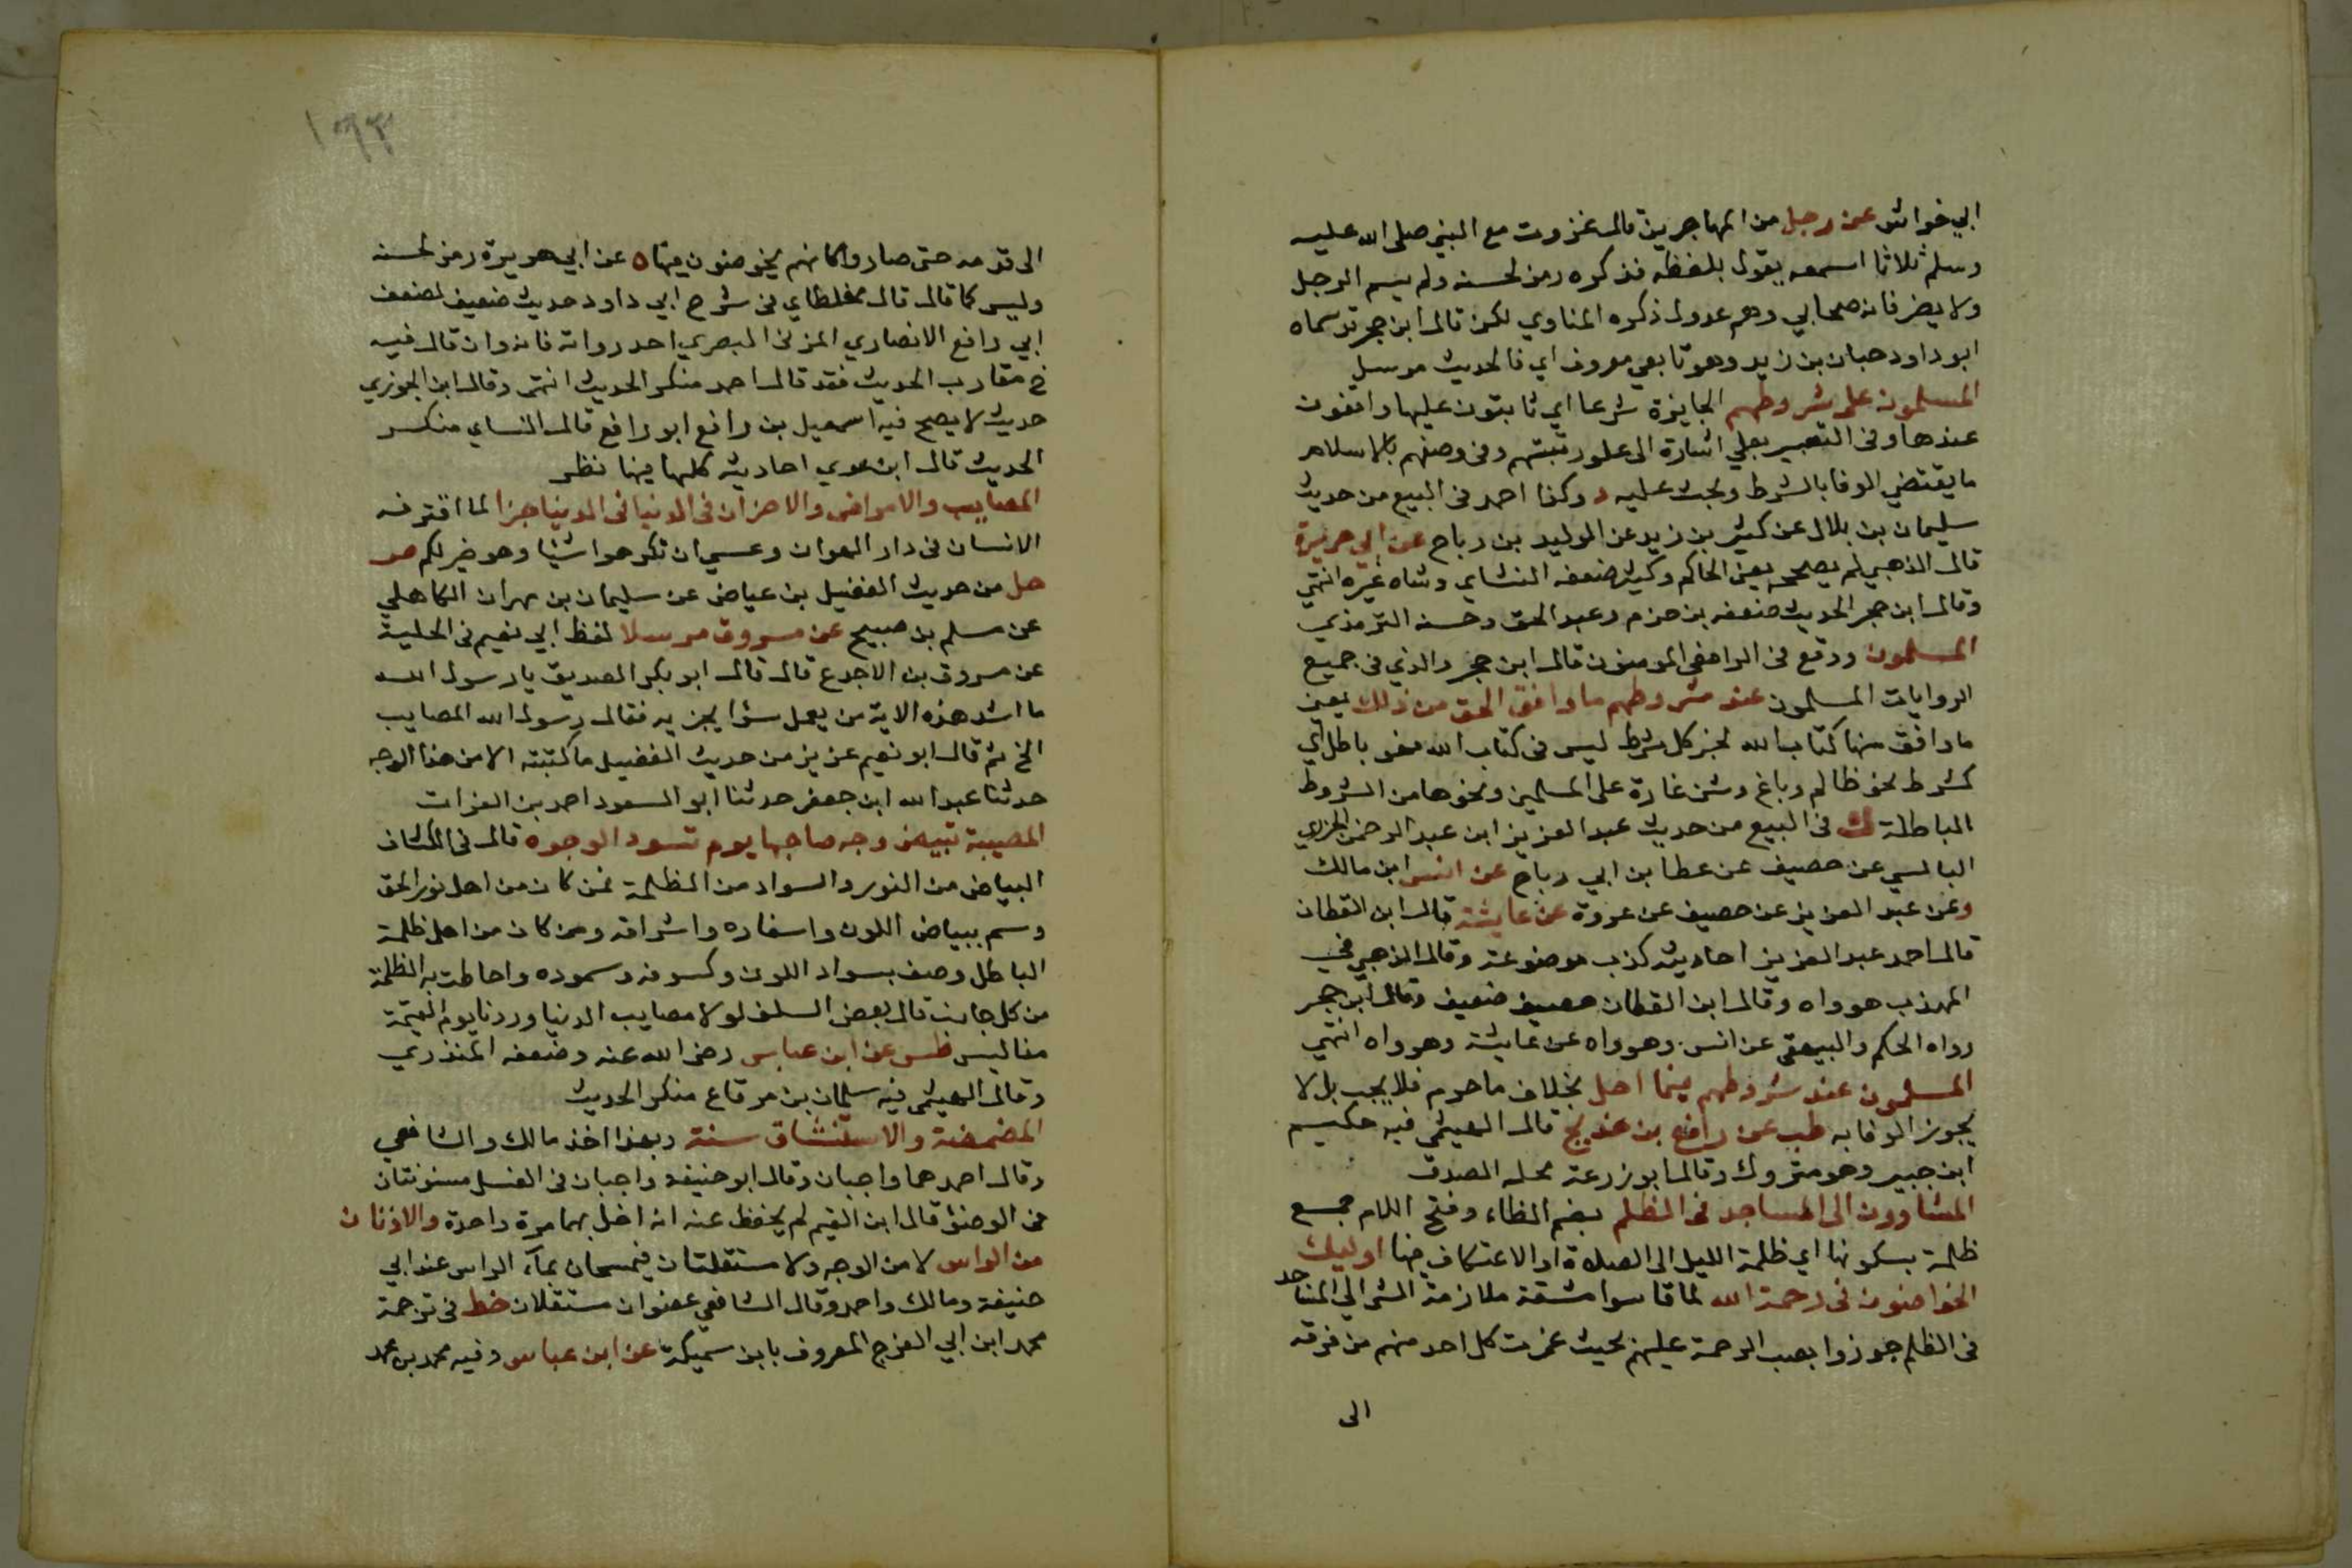 ابي خراش عن رجل من المهاجرين قال غزوت مع النبي صلى الله عليه
وسلم ثلاثا اسمعه يقول بلفظه فذكره رمز لحسنه ولم يسم الرجل
ولا يضر فانه صحابي وهم عدول ذكره المناوي لكن قال ابن حجر قد سماه
ابو داود حبان بن زيد وهو تابعي معروف اي فالحديث مرسل
المسلمون على شروطهم الجايزة شرعا اي ثابتون عليها واقفون
عندها وفي التعبير بعلي اشارة الى علو رتبتهم وفي وصفهم بالاسلام
ما يقتضي الوفا بالشرط ويحث عليه د وكذا احمد في البيع من حديث
سليمان بن بلال عن كثير بن زيد عن الوليد بن رباح عن ابي هريرة
قال الذهبي لم يصححه يعني الحاكم وكثير ضعفه النساي ومشاه غيره انتهي
وقال ابن حجر الحديث ضعفه بن حزم وعبد الحق وحسنه الترمذي
المسلمون ووقع في الرافعي المومنون قال ابن حجر والذي في جميع
الروايات المسلمون عند شروطهم ما وافق الحق من ذلك يعني
ما وافق منها كتاب الله لخبر كل شرط ليس في كتاب الله فهو باطل اي
كشرط نحو ظالم وباغ وشن غارة على المسلمين ونحوها من الشروط
الباطلة ك في البيع من حديث عبد العزيز ابن عبد الرحمن الجزري
البالسي عن خصيف عن عطا بن ابي رباح عن انس ابن مالك
وعن عبد العزيز عن خصيف عن عروة عن عايشة قال ابن القطان
قال احمد عبد العزيز احاديثه كذب موضوعة وقال الذهبي في
المهذب هو واه وقال ابن القطان خصيف ضعيف وقال ابن حجر
رواه الحكم والبيهقي عن انس وهو واه عن عايشة وهو واه انتهي
المسلمون عند شروطهم فيما احل بخلاف ما حرم فلا يجب بل لا
يجوز الوفا به طب عن رافع بن خديج قال الهيثمي فيه حكيم
ابن جبير وهو متروك وقال ابو زرعة محله الصدق
المشاوون الى المساجد في الظلم بضم الظاء وفتح اللام جمع
ظلمة بسكونها اي ظلمة الليل الى الصلاة او الاعتكاف فيها اوليك
الخواضون في رحمة الله لما قاسوا مشقة ملازمة المشي الى المساجد
في الظلم جوزوا بصب الرحمة عليهم بحيث غمرت كل احد منهم من فرقه
الى
١٩٣
الى قدمه حتى صاروا كانهم يخوضون فيها ه عن ابي هريرة رمز لحسنه
وليس كما قال قال مغلطاي في شرح ابي داود حديث ضعيف لضعف
ابي رافع الانصاري المزني البصري احد رواته فانه وان قال فيه
خ مقارب الحديث فقد قال احمد منكر الحديث انتهى وقال ابن الجوزي
حديث لا يصح فيه اسمعيل بن رافع ابو رافع قال النساي منكر
الحديث قال ابن عدي احاديثه كلها فيها نظر
المصايب والامراض والاحزان في الدنيا في الدنيا جزا لما اقترفه
الانسان في دار الهوان وعسى ان تكرهوا شيئا وهو خير لكم ص
حل من حديث الفضيل بن عياض عن سليمان بن مهران الكاهلي
عن مسلم بن صبيح عن مسروق مرسلا لفظ ابي نعيم في الحلية
عن مسروق بن الاجدع قال قال ابو بكر الصديق يا رسول الله
ما اشد هذه الاية من يعمل سؤا يجز به فقال رسول الله المصايب
الخ ثم قال ابو نعيم عزيز من حديث الفضيل ما كتبته الا من هذا الوجه
حدثنا عبد الله ابن جعفر حدثنا ابو السعود احمد بن الفرات
المصيبة تبيض وجه صاحبها يوم تسود الوجوه قال في الكشاف
البياض من النور والسواد من الظلمة فمن كان من اهل نور الحق
وسم ببياض اللون واسفاره واشراقه ومن كان من اهل ظلمة
الباطل وصف بسواد اللون وكسوفه وسموده واحاطت به الظلمة
من كل جانب قال بعض السلف لولا مصايب الدنيا وردنا يوم القيمة
مفاليس طس عن ابن عباس رضى الله عنه وضعفه المنذري
وقال الهيثمي فيه سلمان بن مرقاع منكر الحديث
المضمضة والاستنشاق سنة وبهذا اخذ مالك والشافعي
وقال احمد هما واجبان وقال ابو حنيفة واجبان في الغسل مسنونتان
في الوضؤ قال ابن القيم لم يحفظ عنه انه اخل بهما مرة واحدة والاذنان
من الراس لا من الوجه ولا مستقلتان فيمسحان بماء الراس عند ابي
حنيفة ومالك واحمد وقال الشافعي عضوان مستقلان خط في ترجمة
محمد ابن ابي الفرج المعروف بابن سميكة عن ابن عباس وفيه محمد بن محمد